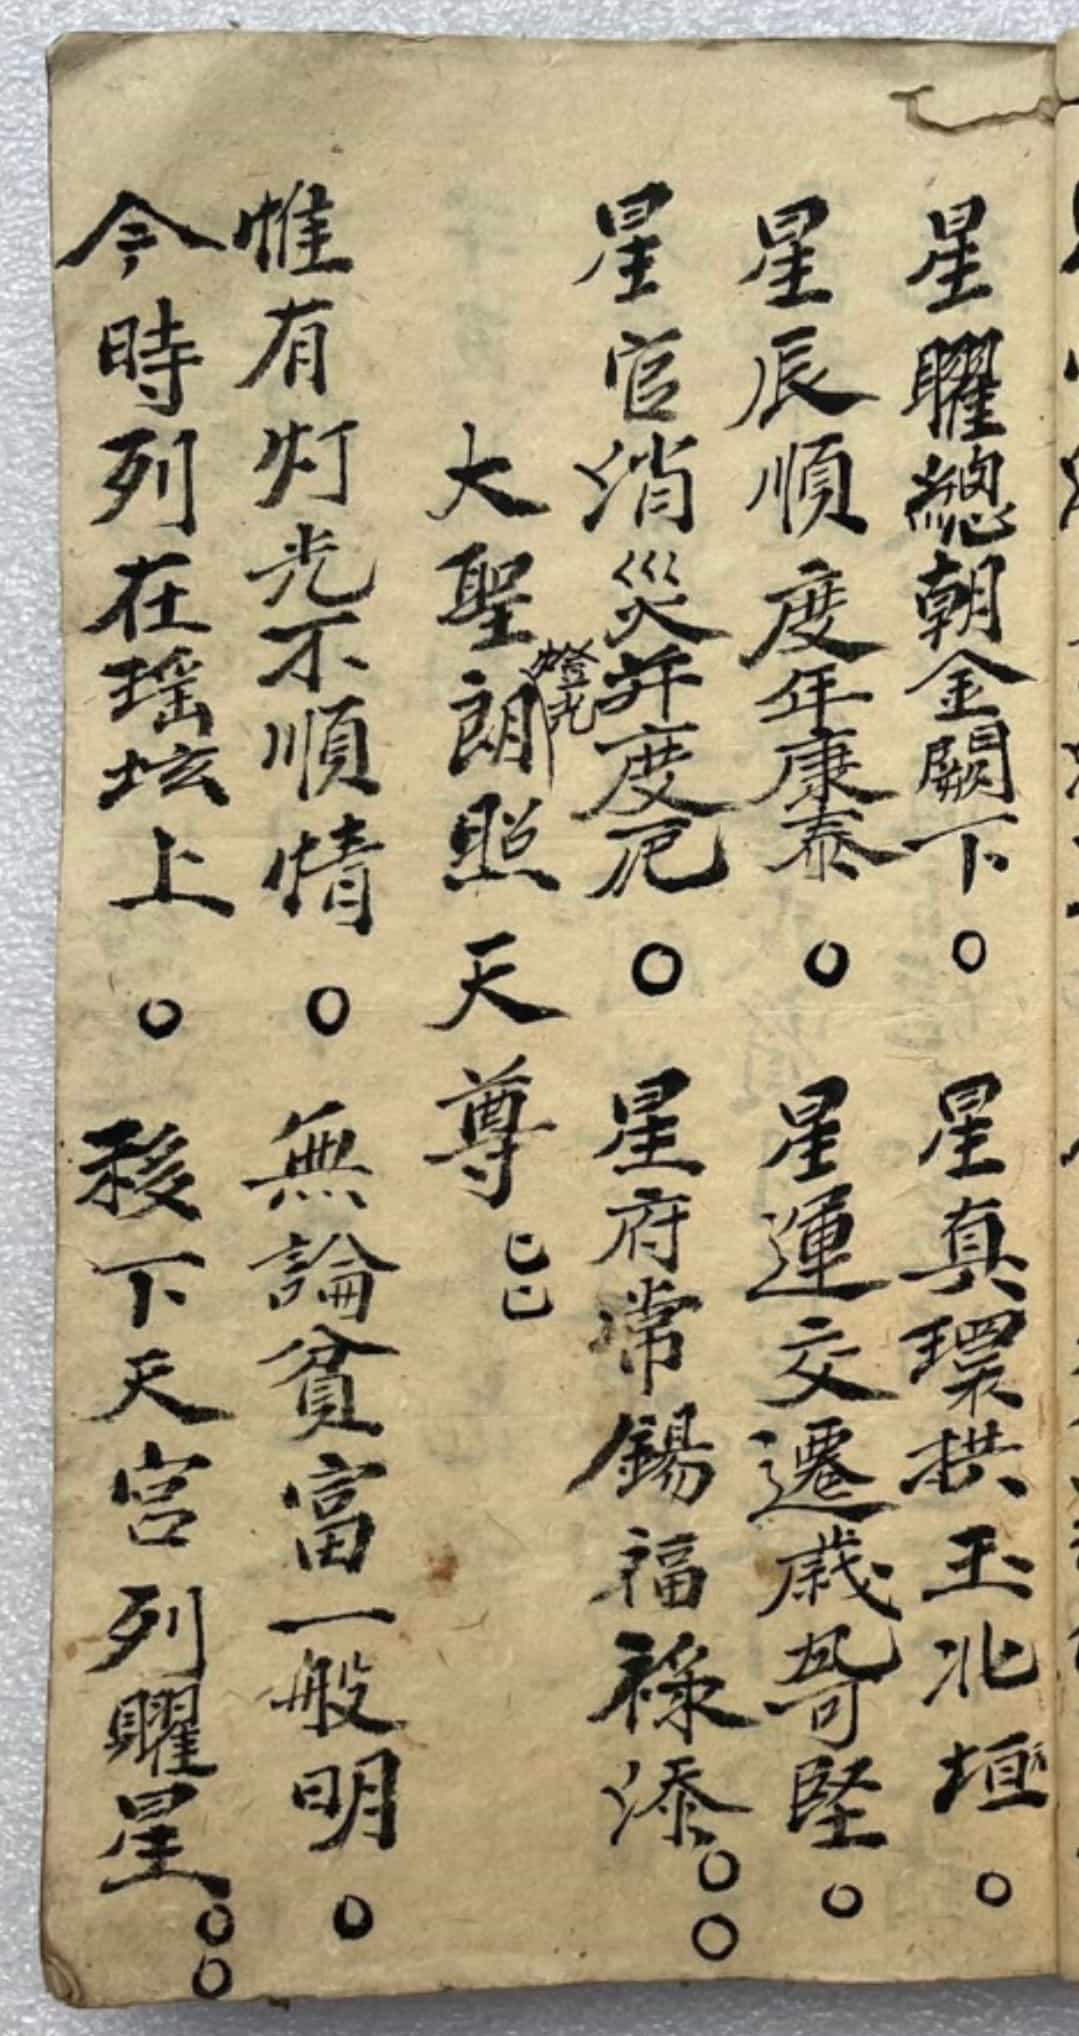 星曜總朝金闕下。星真環拱玉北垣。
星辰順度年康泰。星運交遷歲哿堅。
星官消災并度厄。星府常錫福祿添。。
大聖朗燈光照天尊
惟有灯光不順情。無論貧富一般明。
今時列在瑶坛上。移下天宫列曜星。。